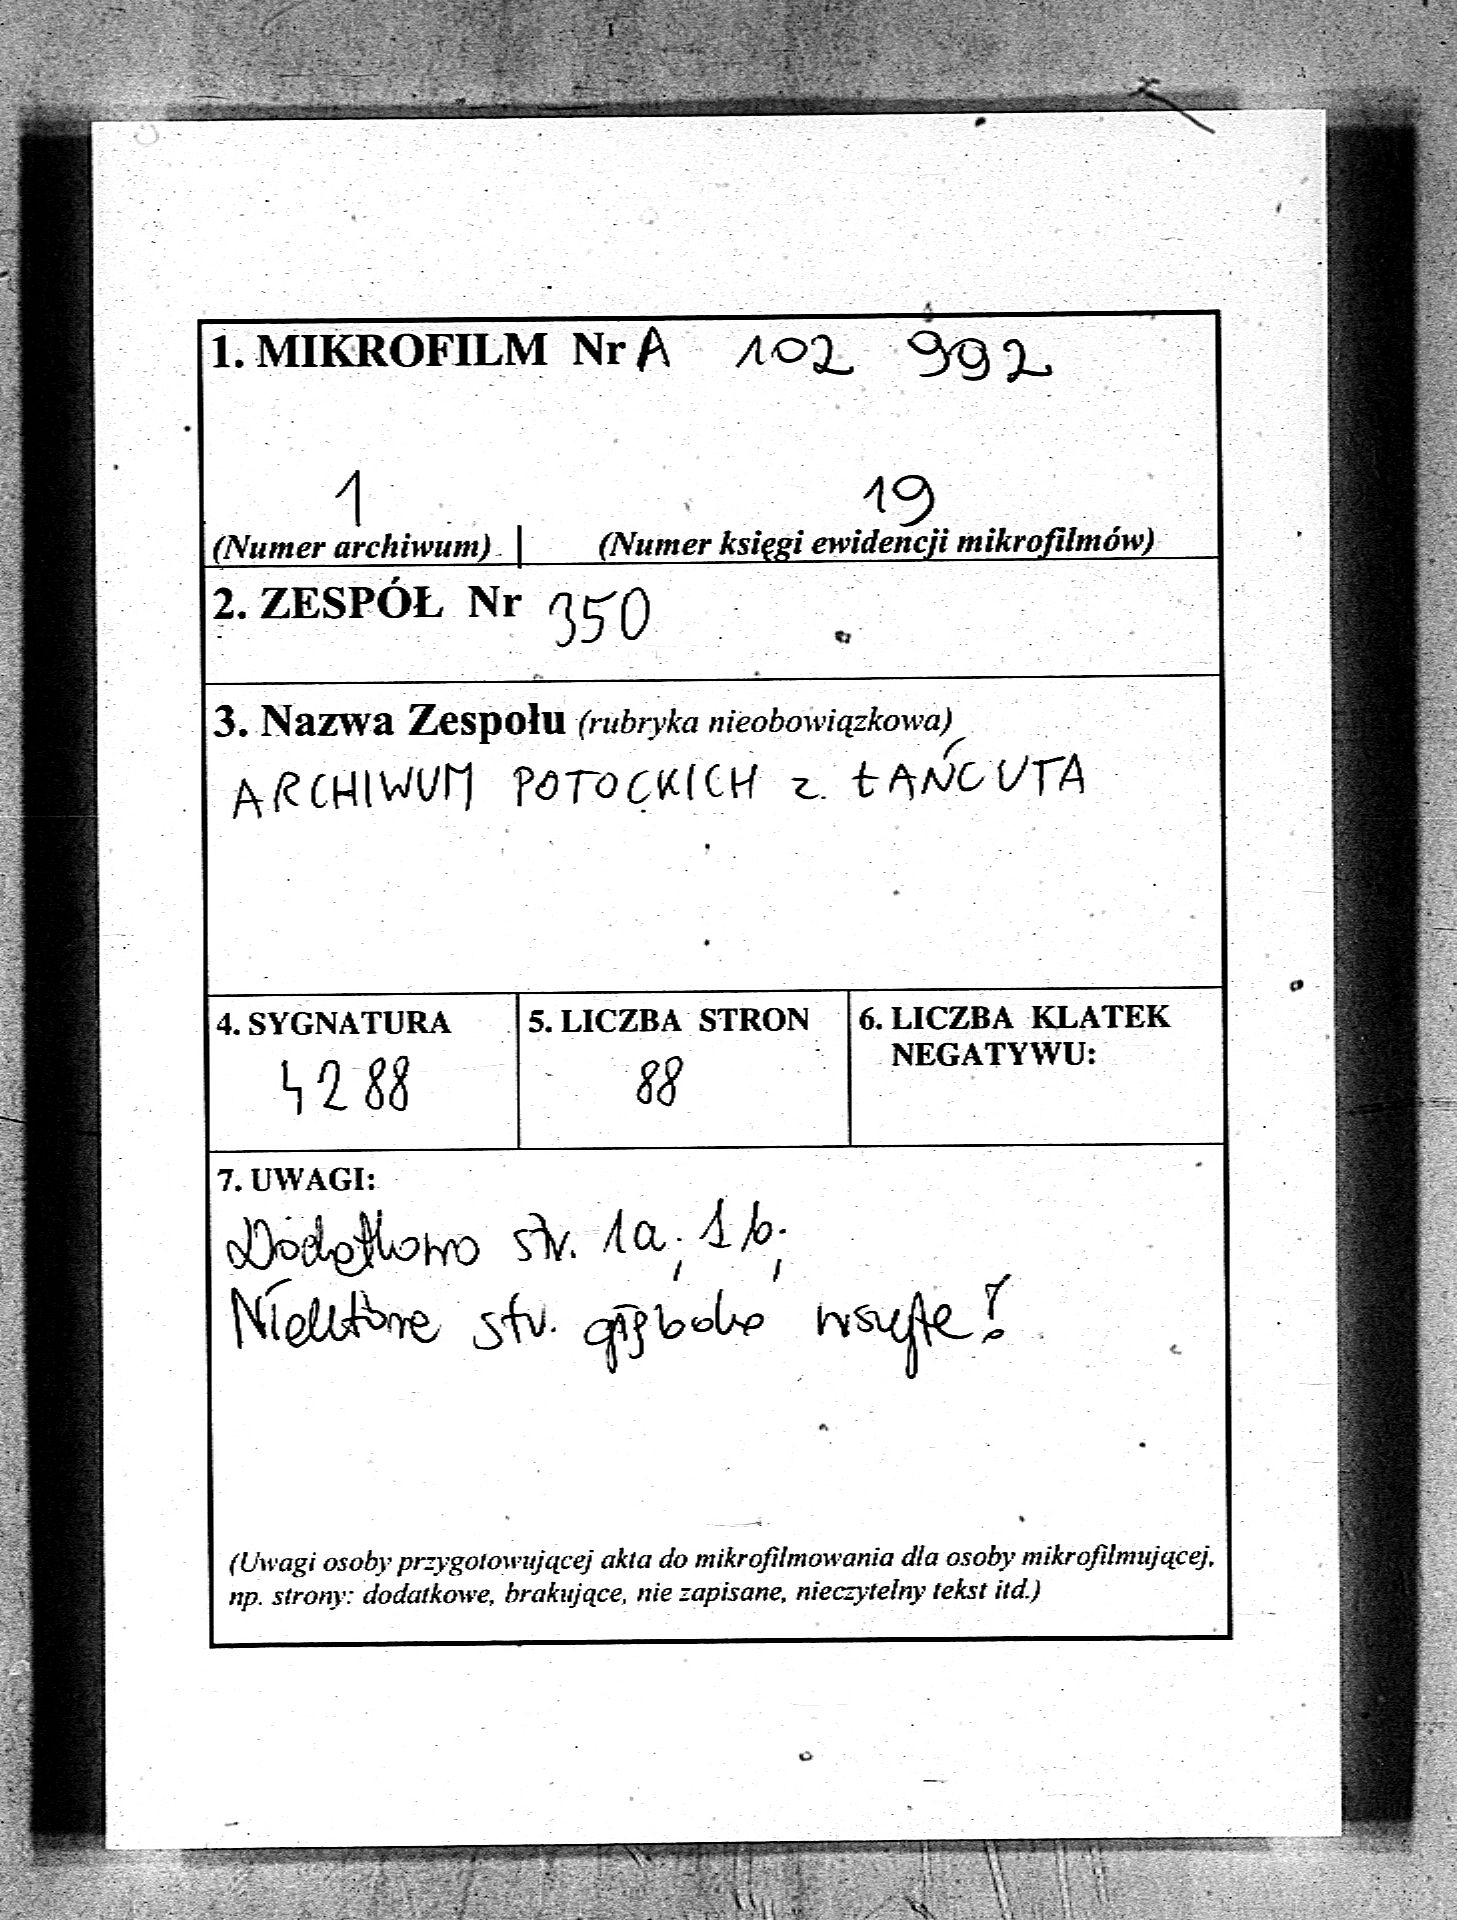 1. MIKROFILM Nr A 102 992
1 19
(Numer archiwum) | (Numer księgi ewidencji mikrofilmów)
2. ZESPÓŁ Nr 350
3. Nazwa Zespołu (rubryka nieobowiązkowa)
ARCHIWUM POTOCKICH z ŁAŃCUTA
4. SYGNATURA 5. LICZBA STRON 6. LICZBA KLATEK
NEGATYWU:
4288 88
7. UWAGI:
Dodatkowo str. 1a; 1b;
Niektóre str. głęboko wszyte!
(Uwagi osoby przygotowującej akta do mikrofilmowania dla osoby mikrofilmującej,
np. strony: dodatkowe, brakujące, nie zapisane, nieczytelny tekst itd.)